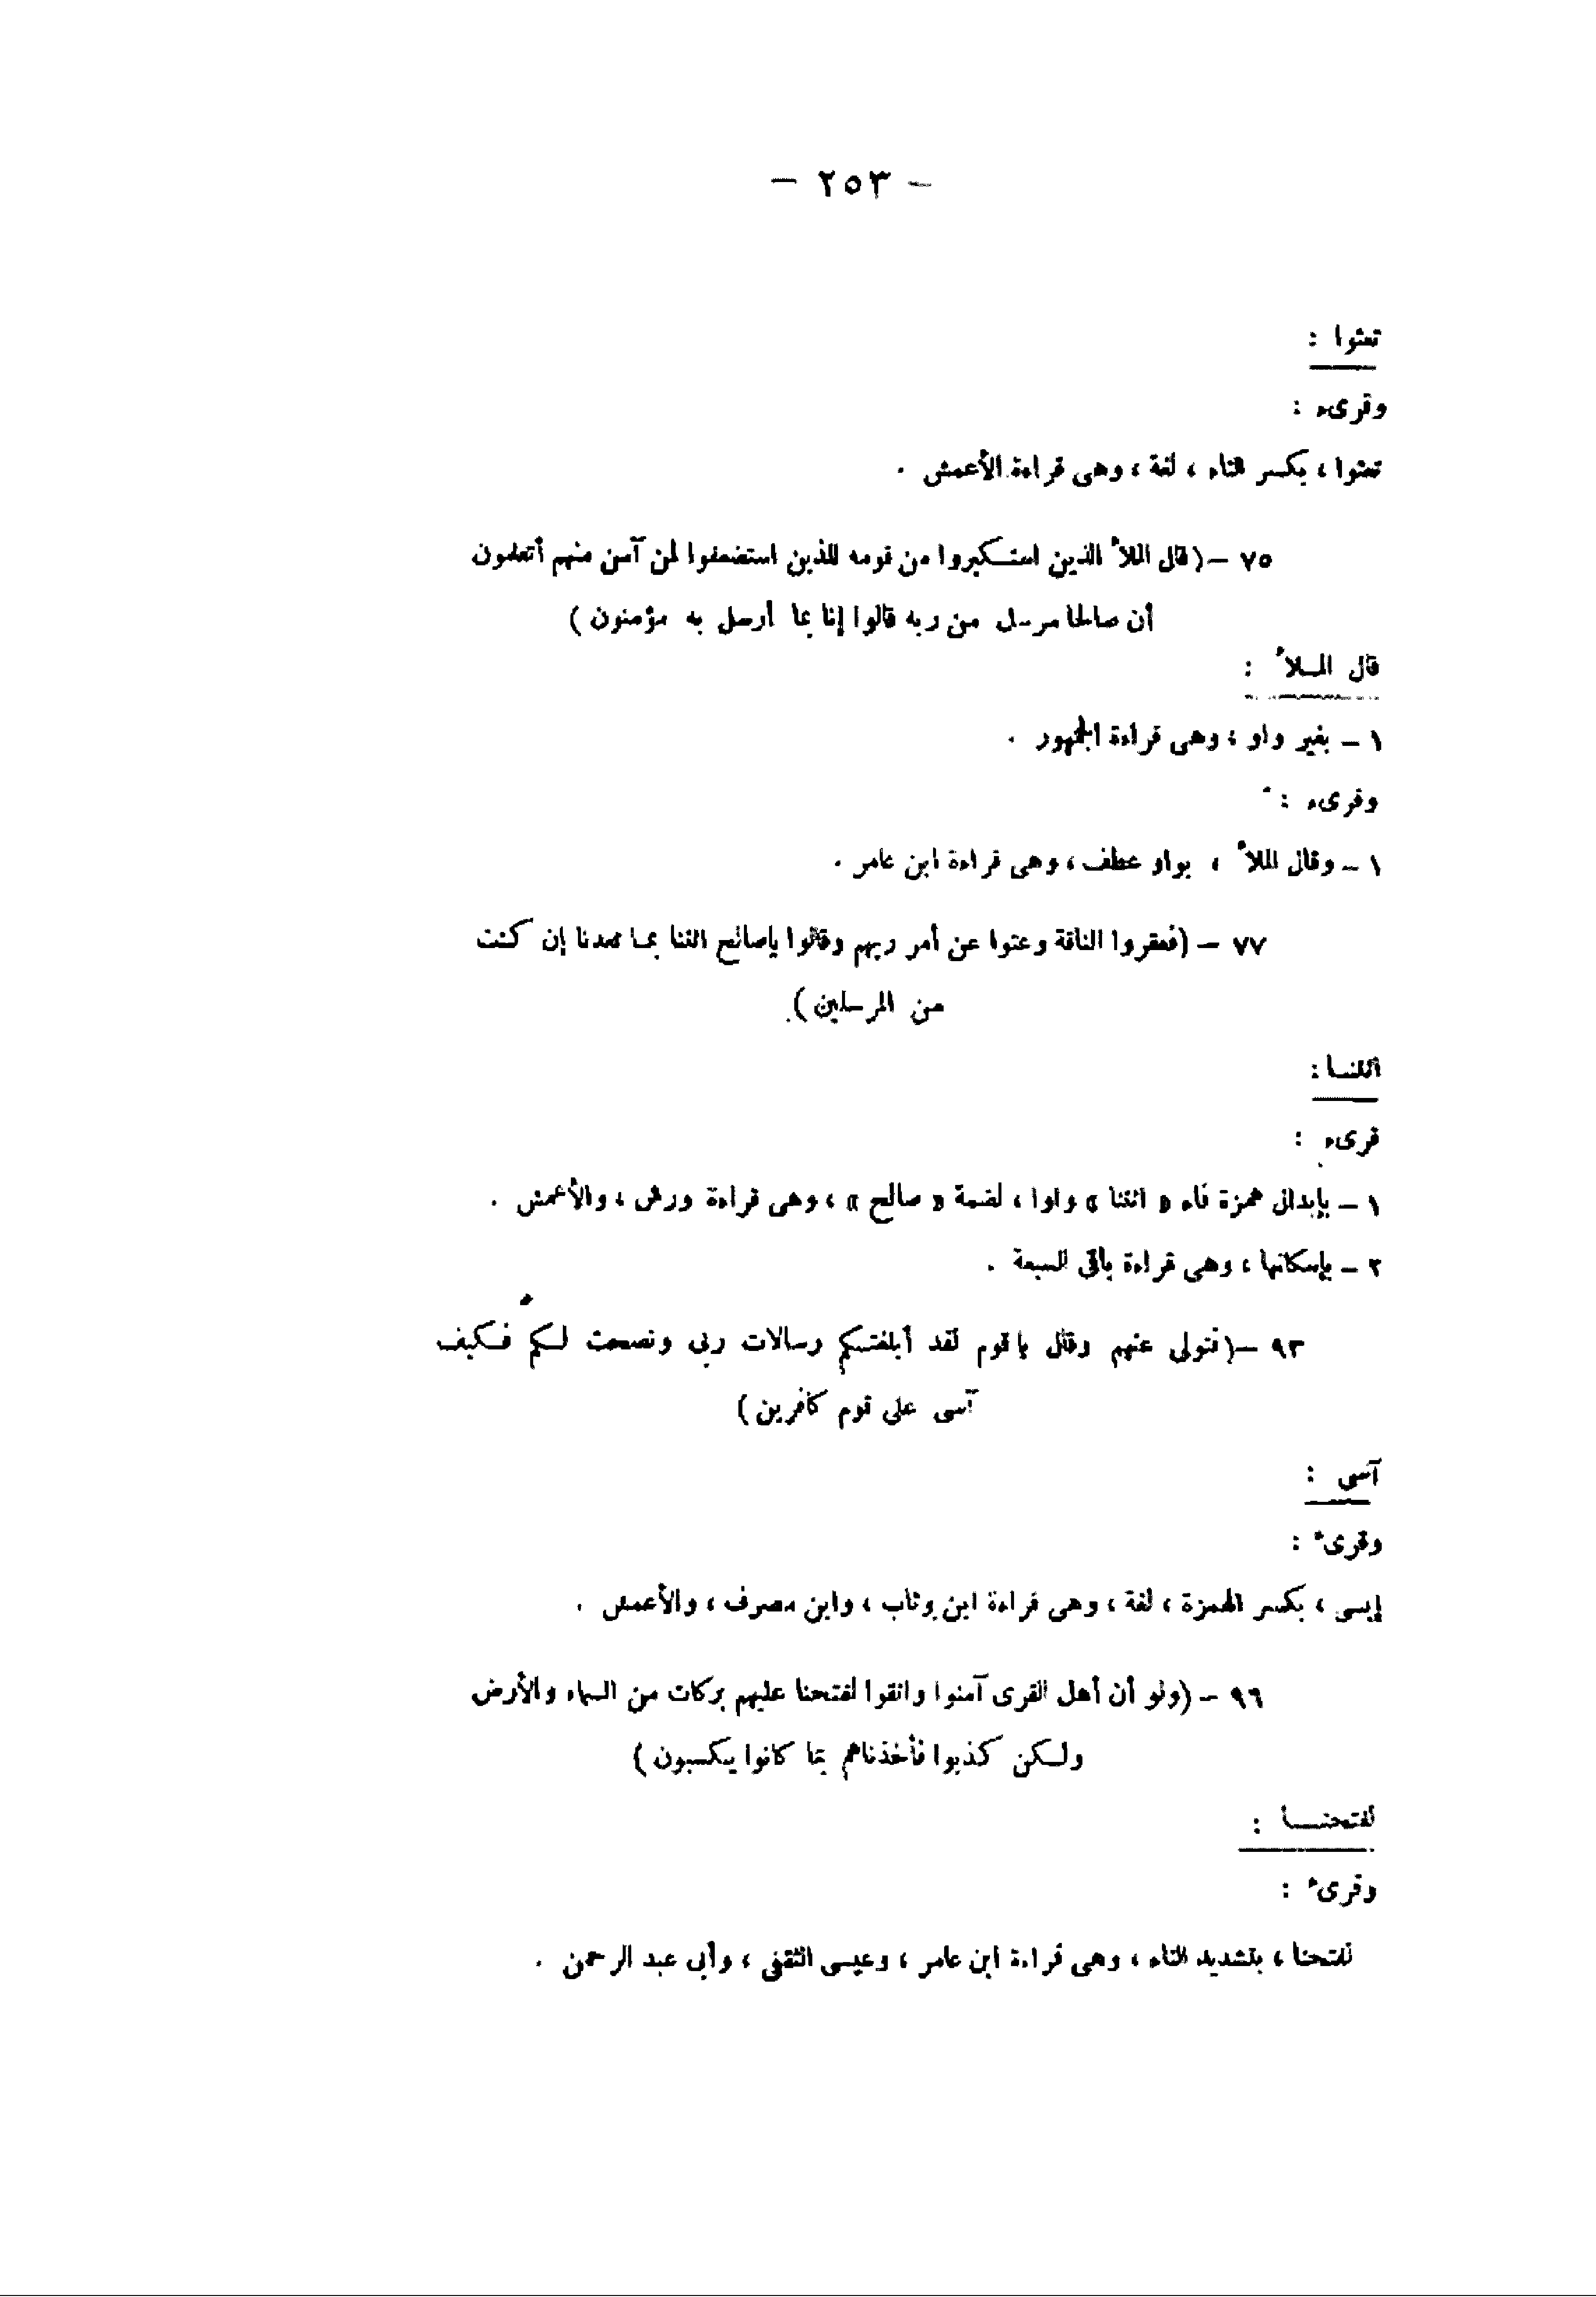 — ٢٥٣ —
تعثوا :
وقرىء :
تعثوا ، بكسر التاء ، لغة ، وهى قراءة الأعمش .
٧٥ – (قال الملأ الذين استكبروا من قومه للذين استضعفوا لمن آمن منهم أتعلمون
أن صالحا مرسل من ربه قالوا إنا بما أرسل به مؤمنون )
قال الملأ :
١ – بغير واو ، وهى قراءة الجمهور .
وقرىء :
١ – وقال الملأ ، بواو عطف ، وهى قراءة ابن عامر .
٧٧ – (فعقروا الناقة وعتوا عن أمر ربهم وقالوا ياصالح ائتنا بما تعدنا إن كنت
من المرسلين ).
ائتنا :
قرىء :
١ – بإبدال همزة فاء « ائتنا » واوا ، لضمة « صالح » ، وهى قراءة ورش ، والأعمش .
٢ – بإسكانها ، وهى قراءة باقى السبعة .
٩٣ – (فتولى عنهم وقال ياقوم لقد أبلغتكم رسالات ربى ونصحت لكم فكيف
آسى على قوم كافرين )
آسى :
وقرىء :
إيسى ، بكسر الهمزة ، لغة ، وهى قراءة ابن وثاب ، وابن مصرف ، والأعمش .
٩٦ – (ولو أن أهل القرى آمنوا واتقوا لفتحنا عليهم بركات من السماء والأرض
ولكن كذبوا فأخذناهم بما كانوا يكسبون )
لفتحنا :
وقرىء :
لفتحنا ، بتشديد التاء ، وهى قراءة ابن عامر ، وعيسى الثقفى ، وأبى عبد الرحمن .